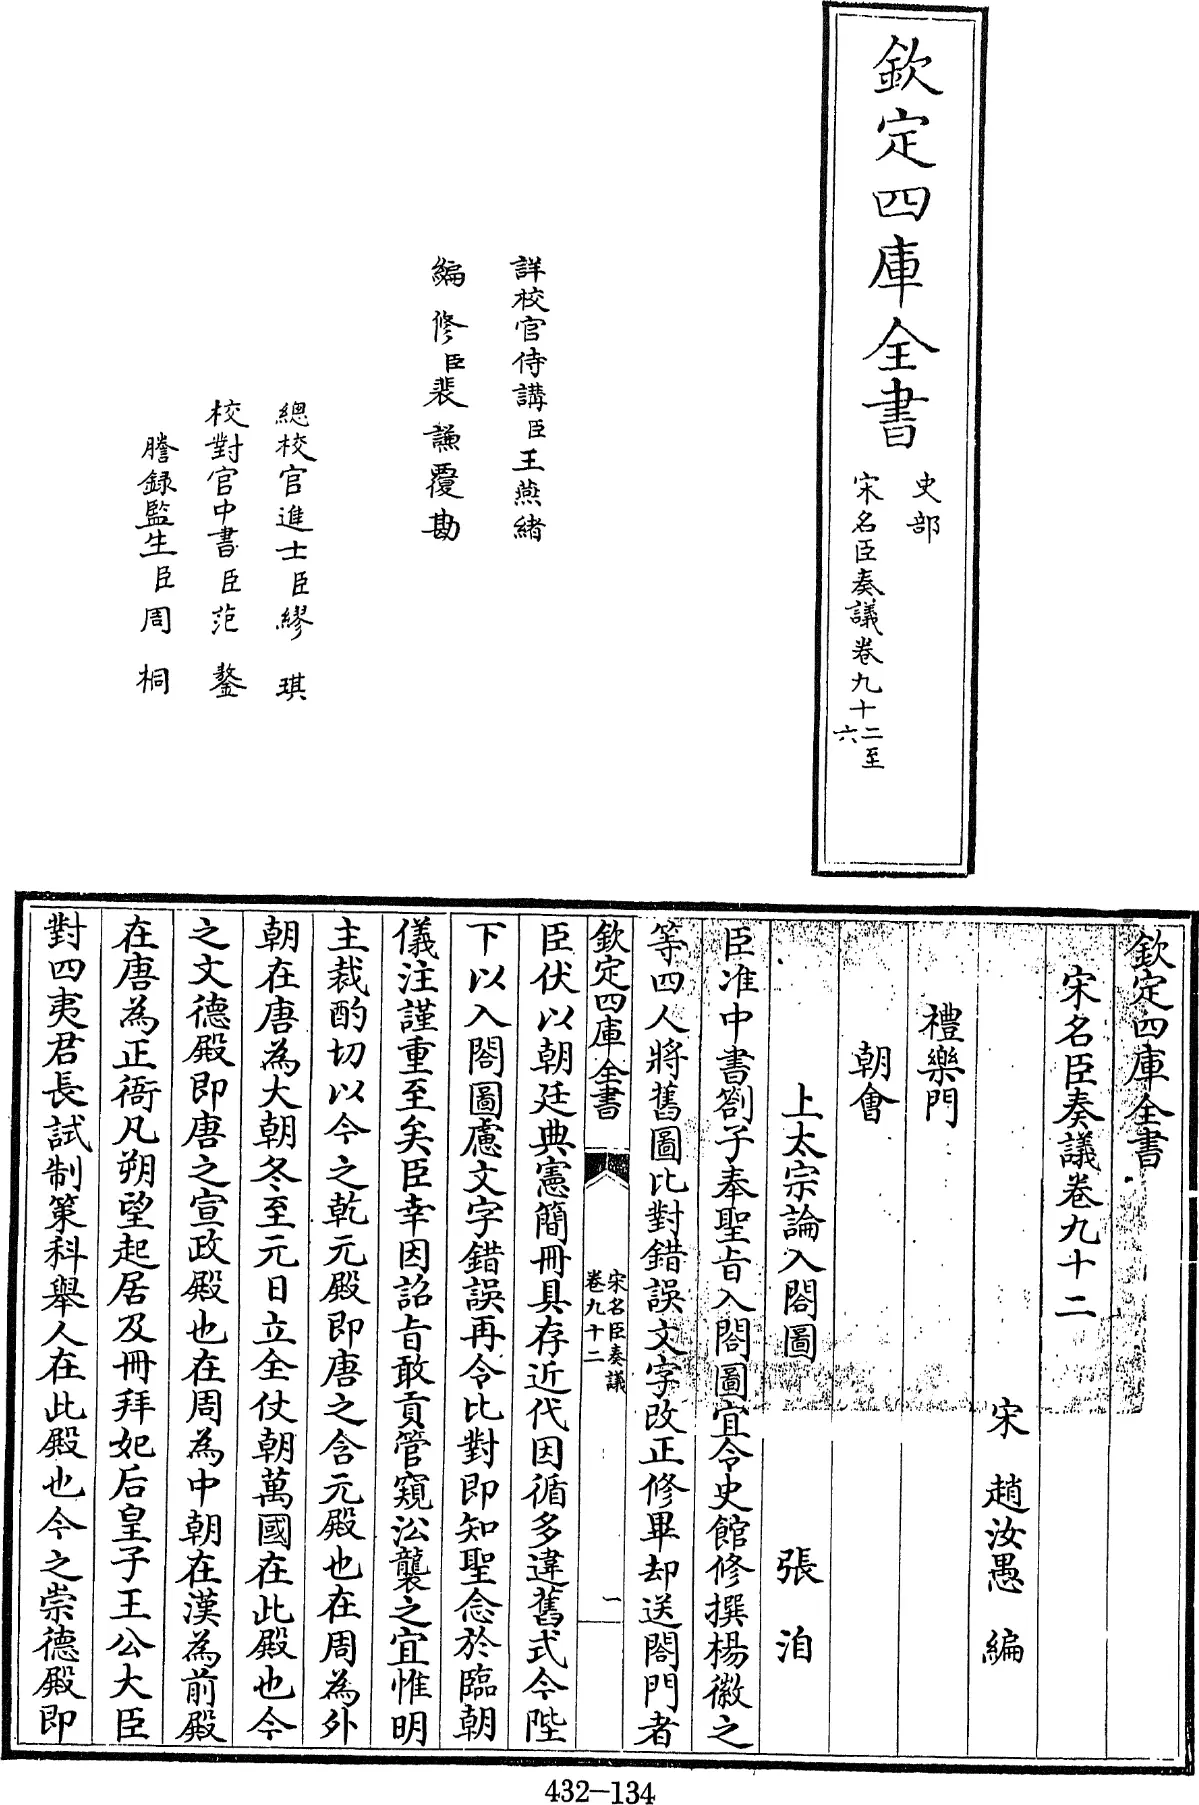 欽定四庫全書
史部
宋名臣奏議卷九十二至
六
詳校官侍講臣王燕緒
編修臣裴謙覆勘
總校官進士臣繆琪
校對官中書臣范鏊
謄錄監生臣周桐
欽定四庫全書
宋名臣奏議卷九十二
宋 趙汝愚 編
禮樂門
朝會
上太宗論入閤圖 張洎
臣准中書劄子奉聖旨入閤圖宜令史館修撰楊徽之
等四人將舊圖比對錯誤文字改正修畢却送閤門者
欽定四庫全書
宋名臣奏議
卷九十二
一
臣伏以朝廷典憲簡冊具存近代因循多違舊式今陛
下以入閤圖慮文字錯誤再令比對即知聖念於臨朝
儀注謹重至矣臣幸因詔旨敢貢管窺沿襲之宜惟明
主裁酌切以今之乾元殿即唐之含元殿也在周為外
朝在唐為大朝冬至元日立全仗朝萬國在此殿也今
之文德殿即唐之宣政殿也在周為中朝在漢為前殿
在唐為正衙凡朔望起居及冊拜妃后皇子王公大臣
對四夷君長試制策科舉人在此殿也今之崇德殿即
432-134